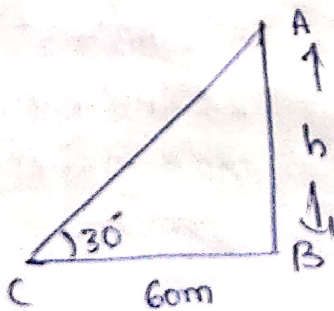 A
h
30°
B
C
60m